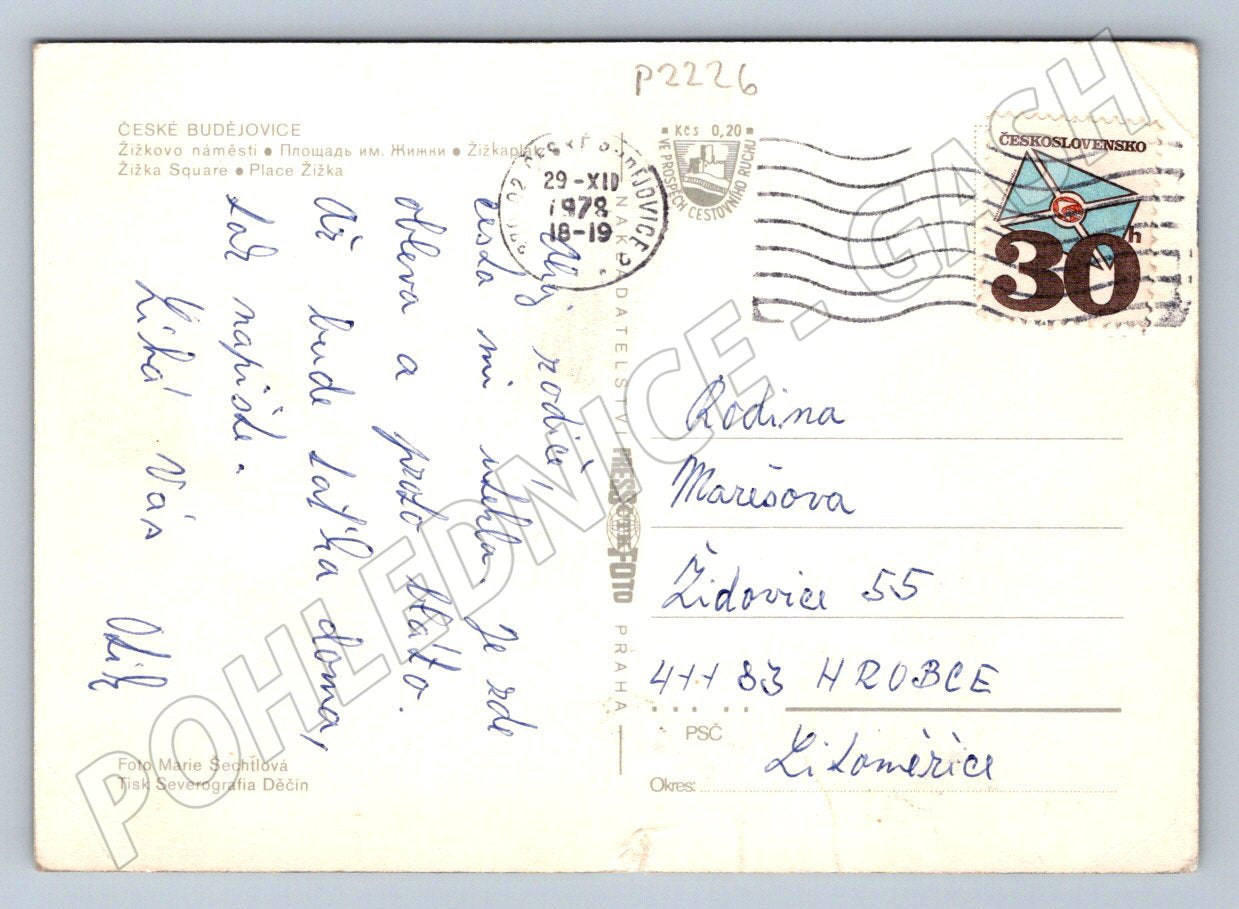 P2226
ČESKÉ BUDĚJOVICE
Žižkovo náměstí • Площадь им. Жижки • Žižkaplatz
Žižka Square • Place Žižka
Kčs 0,20
VE PROSPĚCH CESTOVNÍHO RUCHU
ČESKÉ BUDĚJOVICE 2
29-XII
1978
18-19
ČESKOSLOVENSKO
30h
rodiče,
cesta mi utekla. Je zde
obleva a proto bláto.
Až bude taťka doma,
tak napište.
Líbá Vás
NAKLADATELSTVÍ PRESSČTKFOTO PRAHA
Rodina
Marešova
Židovice 55
411 83 HROBCE
PSČ
Litoměřice
Okres:
Foto Marie Šechtlová
Tisk Severografia Děčín
POHLEDNICE - GASH